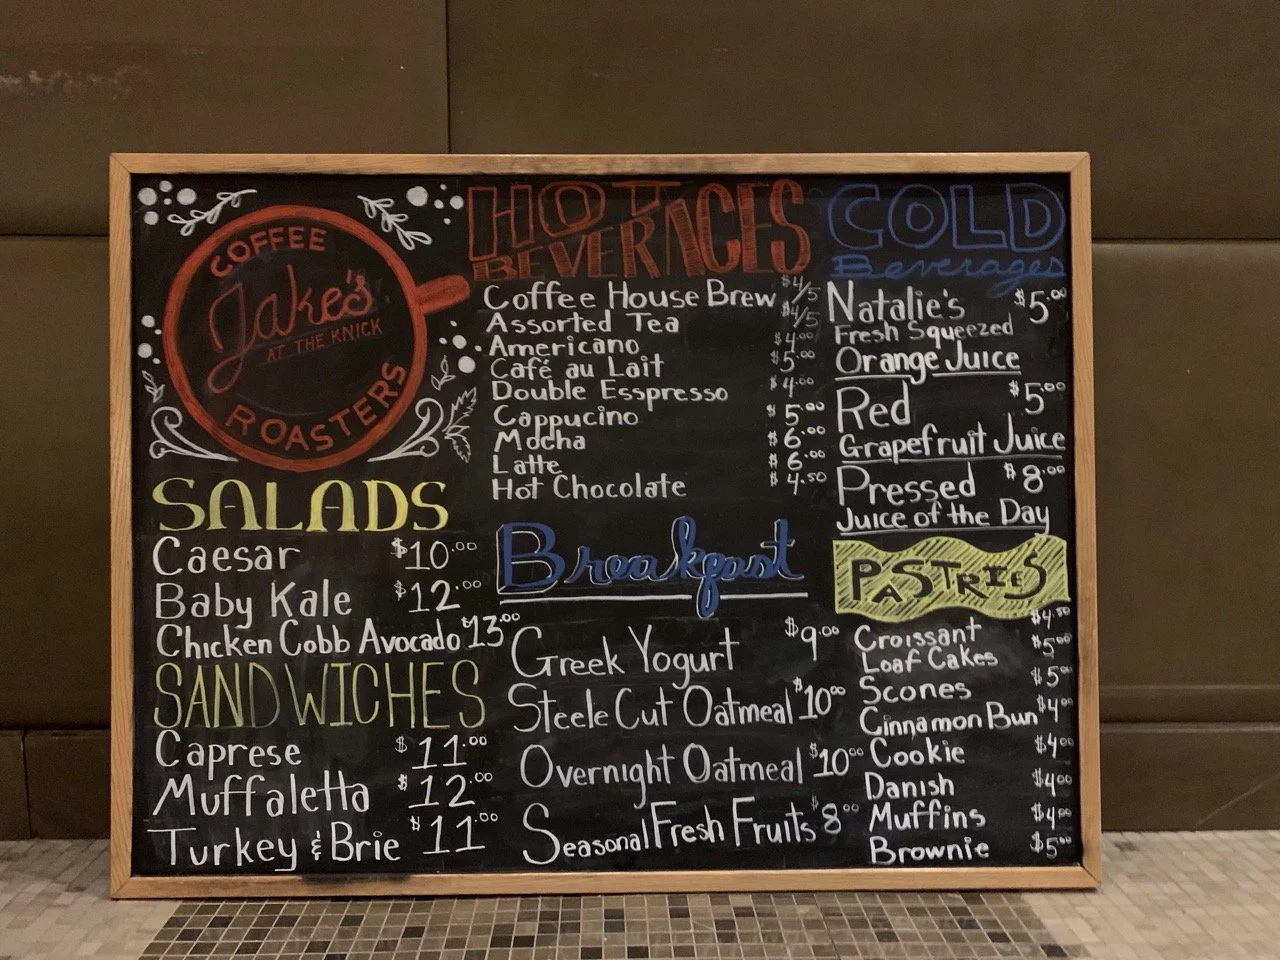 COFFEE
Jake's
AT THE KNICK
ROASTERS
SALADS
Caesar $10.00
Baby Kale $12.00
Chicken Cobb Avocado $13.00
SANDWICHES
Caprese $11.00
Muffaletta $12.00
Turkey & Brie $11.00
HOT
BEVERAGES
Coffee House Brew $4/5
Assorted Tea $4/5
Americano $4.00
Café au Lait $5.00
Double Esspresso $4.00
Cappucino $5.00
Mocha $6.00
Latte $6.00
Hot Chocolate $4.50
Breakfast
Greek Yogurt $9.00
Steele Cut Oatmeal $10.00
Overnight Oatmeal $10.00
Seasonal Fresh Fruits $8.00
COLD
Beverages
Natalie's $5.00
Fresh Squeezed
Orange Juice
Red $5.00
Grapefruit Juice
Pressed $8.00
Juice of the Day
PASTRIES
Croissant $4.50
Loaf Cakes $5.00
Scones $5.00
Cinnamon Bun $4.00
Cookie $4.00
Danish $4.00
Muffins $4.00
Brownie $5.00